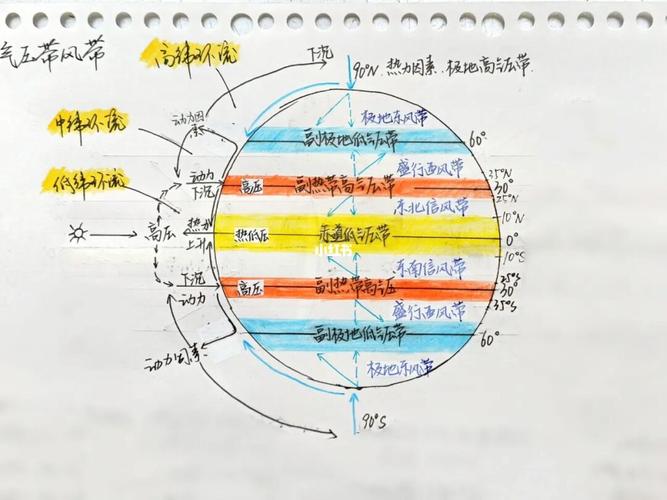 气压带风带
高纬环流
下沉
90°N 热力因素、极地高气压带
中纬环流
动力因素
极地东风带
副极地低气压带
60°
盛行西风带
低纬环流
动力
下沉
高压
副热带高气压带
35°N
30°
25°N
东北信风带
10°N
高压
热力
上升
热低压
赤道低气压带
0°
小红书
10°S
东南信风带
下沉
动力
高压
副热带高气压
25°S
30°
35°S
盛行西风带
副极地低气压带
60°
动力因素
极地东风带
90°S